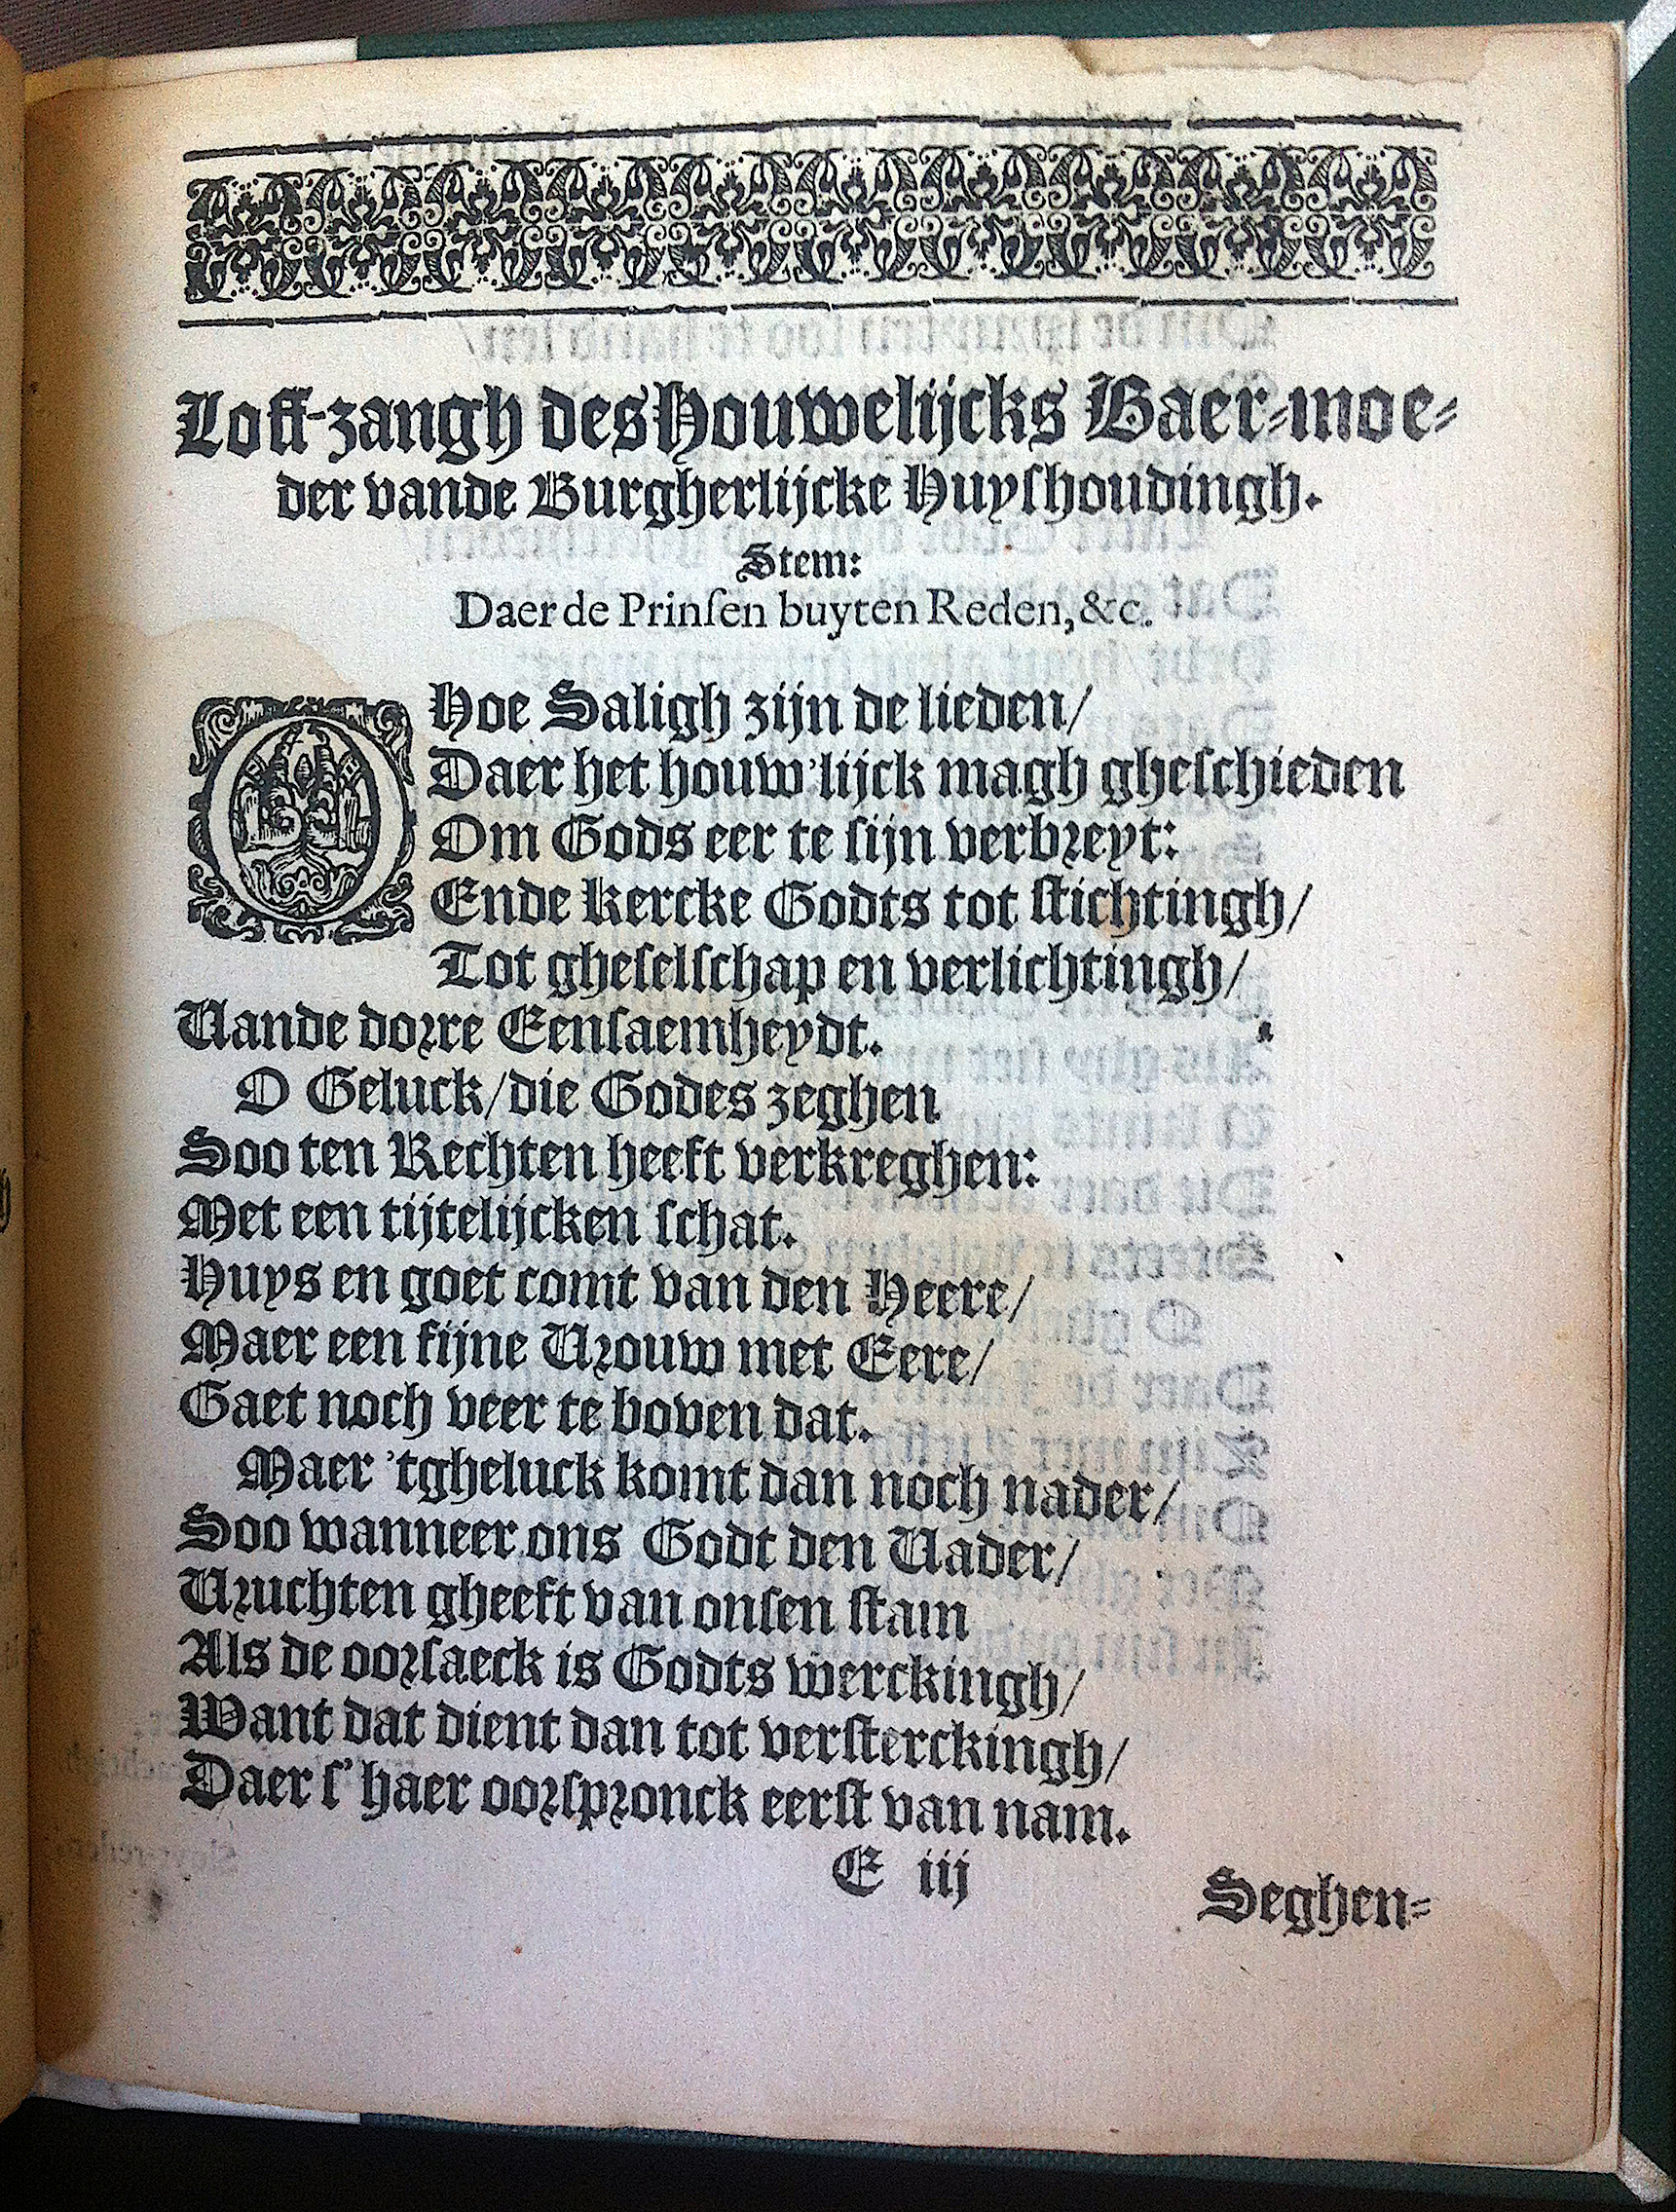 Loff-zangh des Houwelijcks Baer-moe-
der vande Burgherlijcke Huyshoudingh.
Stem:
Daer de Prinsen buyten Reden, &c.
O Hoe Saligh zijn de lieden/
Daer het houw'lijck magh gheschieden
Om Gods eer te sijn verbreyt:
Ende Kercke Godts tot stichtingh/
Tot gheselschap en verlichtingh/
Vande dorre Eensaemheydt.
O Geluck/die Godes zeghen
Soo ten Rechten heeft verkreghen:
Met een tijtelijcken schat.
Huys en goet comt van den Heere/
Maer een fijne Vrouw met Eere/
Gaet noch veer te boven dat.
Maer 'tgheluck komt dan noch nader/
Soo wanneer ons Godt den Vader/
Vruchten gheeft van onsen stam
Als de oorsaeck is Godts werckingh/
Want dat dient dan tot versterckingh/
Daer s' haer oorspronck eerst van nam.
E iij
Seghen-